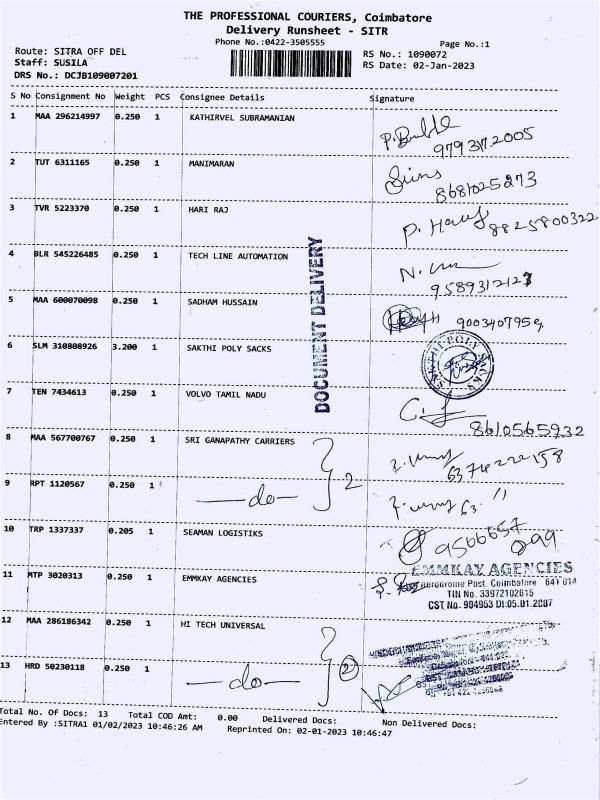 THE PROFESSIONAL COURIERS, Coimbatore
Delivery Runsheet - SITR
Phone No.:0422-3505555
Page No.:1
Route: SITRA OFF DEL
RS No.: 1090072
Staff: SUSILA
RS Date: 02-Jan-2023
DRS No.: DCJB109007201
S No Consignment No Weight PCS Consignee Details Signature
1 MAA 296214997 0.250 1 KATHIRVEL SUBRAMANIAN
2 TUT 6311165 0.250 1 MANIMARAN
8681025273
3 TVR 5223370 0.250 1 HARI RAJ
8825800322
4 BLR 545226485 0.250 1 TECH LINE AUTOMATION
9589312123
5 MAA 600070098 0.250 1 SADHAM HUSSAIN
6 SLM 310808926 3.200 1 SAKTHI POLY SACKS
SAKTHI POLY SACKS
DOCUMENT DELIVERY
7 TEN 7434613 0.250 1 VOLVO TAMIL NADU
8610565932
8 MAA 567700767 0.250 1 SRI GANAPATHY CARRIERS
2
9 RPT 1120567 0.250 1 —do—
10 TRP 1337337 0.205 1 SEAMAN LOGISTIKS
9566657
299
11 MTP 3020313 0.250 1 EMMKAY AGENCIES
EMMKAY AGENCIES
Aerodrome Post. Coimbatore 641 014
TIN No. 33972102615
CST No. 904953 Dt:05.01.2007
12 MAA 286186342 0.250 1 HI TECH UNIVERSAL
2
13 HRD 50230118 0.250 1 —do—
Total No. Of Docs: 13 Total COD Amt: 0.00 Delivered Docs: Non Delivered Docs:
Entered By :SITRA1 01/02/2023 10:46:26 AM Reprinted On: 02-01-2023 10:46:47